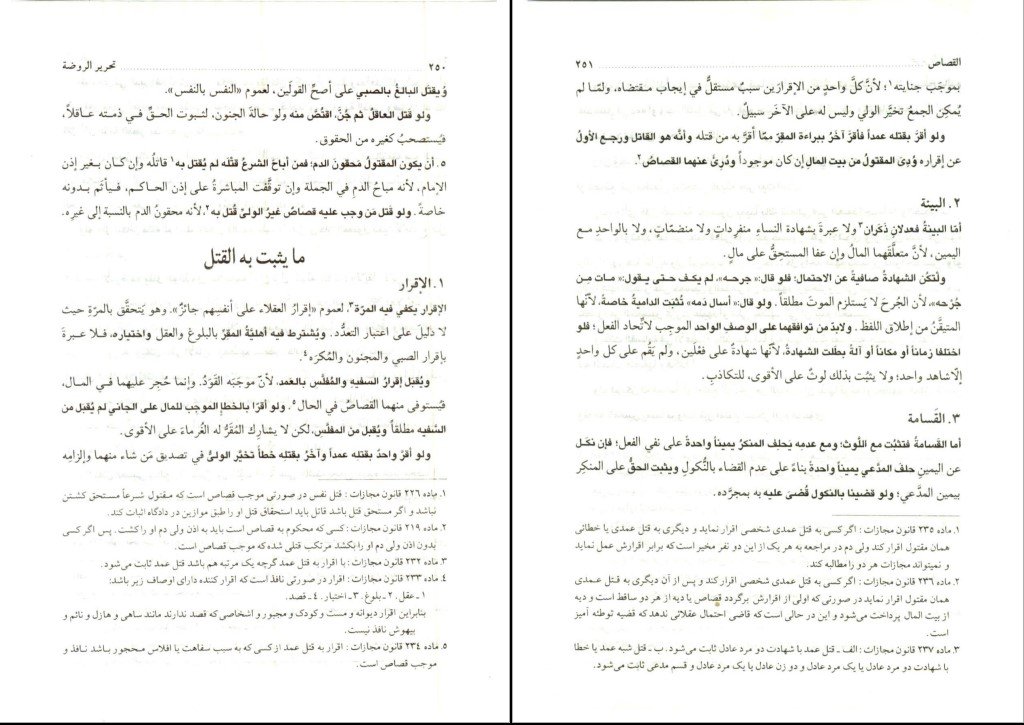 ٢٥٠ تحرير الروضة
وُيقتل البالغُ بالصبي على أصحِّ القولَين، لعموم «النفس بالنفس».
ولو قتل العاقلُ ثم جُنّ، اقتُصّ منه ولو حالةَ الجنون، لثبوت الحقّ في ذمته عاقلاً،
فيُستصحبُ كغيره من الحقوق.
٥. أنْ يكون المقتولُ محقونَ الدم؛ فمن أباحَ الشرعُ قتْلَه لم يُقتل به١ قاتلُه وإن كان بغير إذن
الإمام، لأنه مباحُ الدمِ في الجملة وإن توقّفت المباشرةُ على إذن الحاكم، فيأثمُ بدونه
خاصةً. ولو قتل مَن وجب عليه قصاصٌ غيرُ الوليّ قُتل به٢، لأنه محقونُ الدم بالنسبة إلى غيرِه.
ما يثبت به القتل
١. الإقرار
الإقرار يكفي فيه المرّة٣، لعموم «إقرارُ العقلاء على أنفسهم جائزٌ». وهو يَتحقّق بالمرّةِ حيث
لا دليلَ على اعتبار التعدُّد. ويُشترط فيه أهليّةُ المقرّ بالبلوغ والعقل واختياره، فلا عبرةَ
بإقرار الصبي والمجنون والمُكرَه٤.
ويُقبَل إقرارُ السفيه والمُفلَّس بالعمد، لأنّ موجَبَه القَوَدُ. وإنما حُجر عليهما في المال،
فيُستوفى منهما القصاصُ في الحال٥. ولو أقرّا بالخطأ الموجب للمال على الجاني لم يُقبل من
السَّفيه مطلقاً ويُقبل من المفلَّس، لكن لا يشاركِ المُقَرُّ له الغُرماءَ على الأقوى.
ولو أقر واحدٌ بقتله عمداً وآخرُ بقتله خطأً تخيَّر الوليُّ في تصديق مَن شاء منهما وإلزامِه
١. ماده ٢٢٦ قانون مجازات: قتل نفس در صورتى موجب قصاص است كه مقتول شرعاً مستحق كشتن
نباشد و اگر مستحق قتل باشد قاتل بايد استحقاق قتل او را طبق موازين در دادگاه اثبات كند.
٢. ماده ٢١٩ قانون مجازات: كسى كه محكوم به قصاص است بايد به اذن ولى دم او را كشت. پس اگر كسى
بدون اذن ولى دم او را بكشد مرتكب قتلى شده كه موجب قصاص است.
٣. ماده ٢٣٢ قانون مجازات: با اقرار به قتل عمد گرچه يک مرتبه هم باشد قتل عمد ثابت مى‌شود.
٤. ماده ٢٣٣ قانون مجازات: اقرار در صورتى نافذ است كه اقرار كننده داراى اوصاف زير باشد:
١ ـ عقل. ٢ ـ بلوغ. ٣ ـ اختيار. ٤ ـ قصد.
بنابراين اقرار ديوانه و مست و كودک و مجبور و اشخاصى كه قصد ندارند مانند ساهى و هازل و نائم و
بيهوش نافذ نيست.
٥. ماده ٢٣٤ قانون مجازات: اقرار به قتل عمد از كسى كه به سبب سفاهت يا افلاس محجور باشد نافذ و
موجب قصاص است.
القصاص ٢٥١
بموجَب جنايته١؛ لأنّ كلَّ واحدٍ من الإقرارَين سببٌ مستقلٌّ في إيجاب مقتضاه، ولمّا لم
يُمكِنِ الجمعُ تخيَّر الولي وليس له على الآخَر سبيلٌ.
ولو أقرّ بقتله عمداً فأقرّ آخرُ ببراءة المقرّ ممّا أقرَّ به من قتله وأنّه هو القاتل ورجع الأولُ
عن إقراره وُدِيَ المقتولُ من بيت المال إن كان موجوداً ودُرِئَ عنهما القصاصُ٢.
٢. البينة
أمّا البينةُ فعدلانِ ذَكَران٣ ولا عبرةَ بشهادة النساءِ منفرداتٍ ولا منضمّاتٍ، ولا بالواحدِ مع
اليمين، لأنَّ متعلَّقَهما المالُ وإن عفا المستحِقُّ على مالٍ.
ولْتَكُن الشهادةُ صافيةً عن الاحتمال؛ فلو قال:« جرحه»، لم يكف حتى يقول:« مات مِن
جُرْحه»، لأن الجُرحَ لا يَستلزم الموتَ مطلقاً. ولو قال:« أسال دمَه» تُثبّت الداميةُ خاصةً، لأنّها
المتيقَّنُ من إطلاقِ اللفظ. ولابدّ من توافقِهما على الوصف الواحد الموجِب لاتّحاد الفعل؛ فلو
اختلفا زماناً أو مكاناً أو آلةً بطلت الشهادةُ، لأنّها شهادةٌ على فعْلَين، ولم يَقُم على كل واحدٍ
إلّا شاهد واحد؛ ولا يثبُت بذلك لوثٌ على الأقوى، للتكاذبِ.
٣. القَسامة
أما القسامةُ فتثبُت مع اللَّوث؛ ومع عدمه يَحلِف المنكرُ يميناً واحدةً على نفي الفعل؛ فإن نكل
عن اليمين حلف المدّعي يميناً واحدةً بناءً على عدم القضاء بالنُّكول ويثبت الحقُّ على المنكِر
بيمين المدّعي؛ ولو قضينا بالنكول قُضيَ عليه به بمجرّده.
١. ماده ٢٣٥ قانون مجازات: اگر كسى به قتل عمدى شخصى اقرار نمايد و ديگرى به قتل عمدى يا خطائى
همان مقتول اقرار كند ولى دم در مراجعه به هر يک از اين دو نفر مخير است كه برابر اقرارش عمل نمايد
و نميتواند مجازات هر دو را مطالبه كند.
٢. ماده ٢٣٦ قانون مجازات: اگر كسى به قتل عمدى شخصى اقرار كند و پس از آن ديگرى به قتل عمدى
همان مقتول اقرار نمايد در صورتى كه اولى از اقرارش برگردد قصاص يا ديه از هر دو ساقط است و ديه
از بيت المال پرداخت مى‌شود و اين در حالى است كه قاضى احتمال عقلائى ندهد كه قضيه توطئه آميز
است.
٣. ماده ٢٣٧ قانون مجازات: الف ـ قتل عمد با شهادت دو مرد عادل ثابت مى‌شود. ب ـ قتل شبه عمد يا خطا
با شهادت دو مرد عادل يا يک مرد عادل و دو زن عادل يا يک مرد عادل و قسم مدعى ثابت مى‌شود.